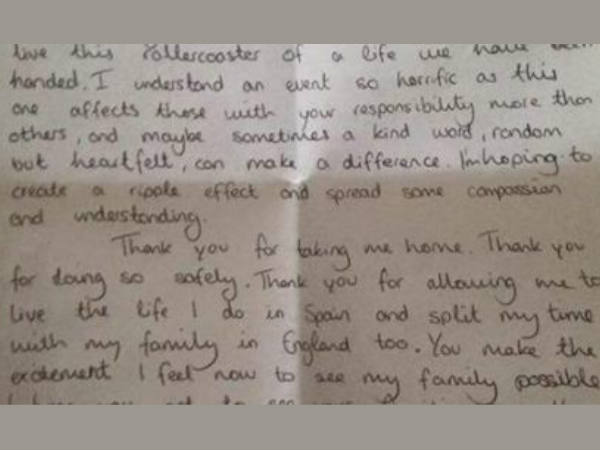 live this rollercoaster of a life we have been
handed. I understand an event so horrific as this
one affects those with your responsibility more than
others, and maybe sometimes a kind word, random
but heartfelt, can make a difference. I'm hoping to
create a ripple effect and spread some compassion
and understanding.
Thank you for taking me home. Thank you
for doing so safely. Thank you for allowing me to
live the life I do in Spain and split my time
with my family in England too. You make the
excitement I feel now to see my family possible